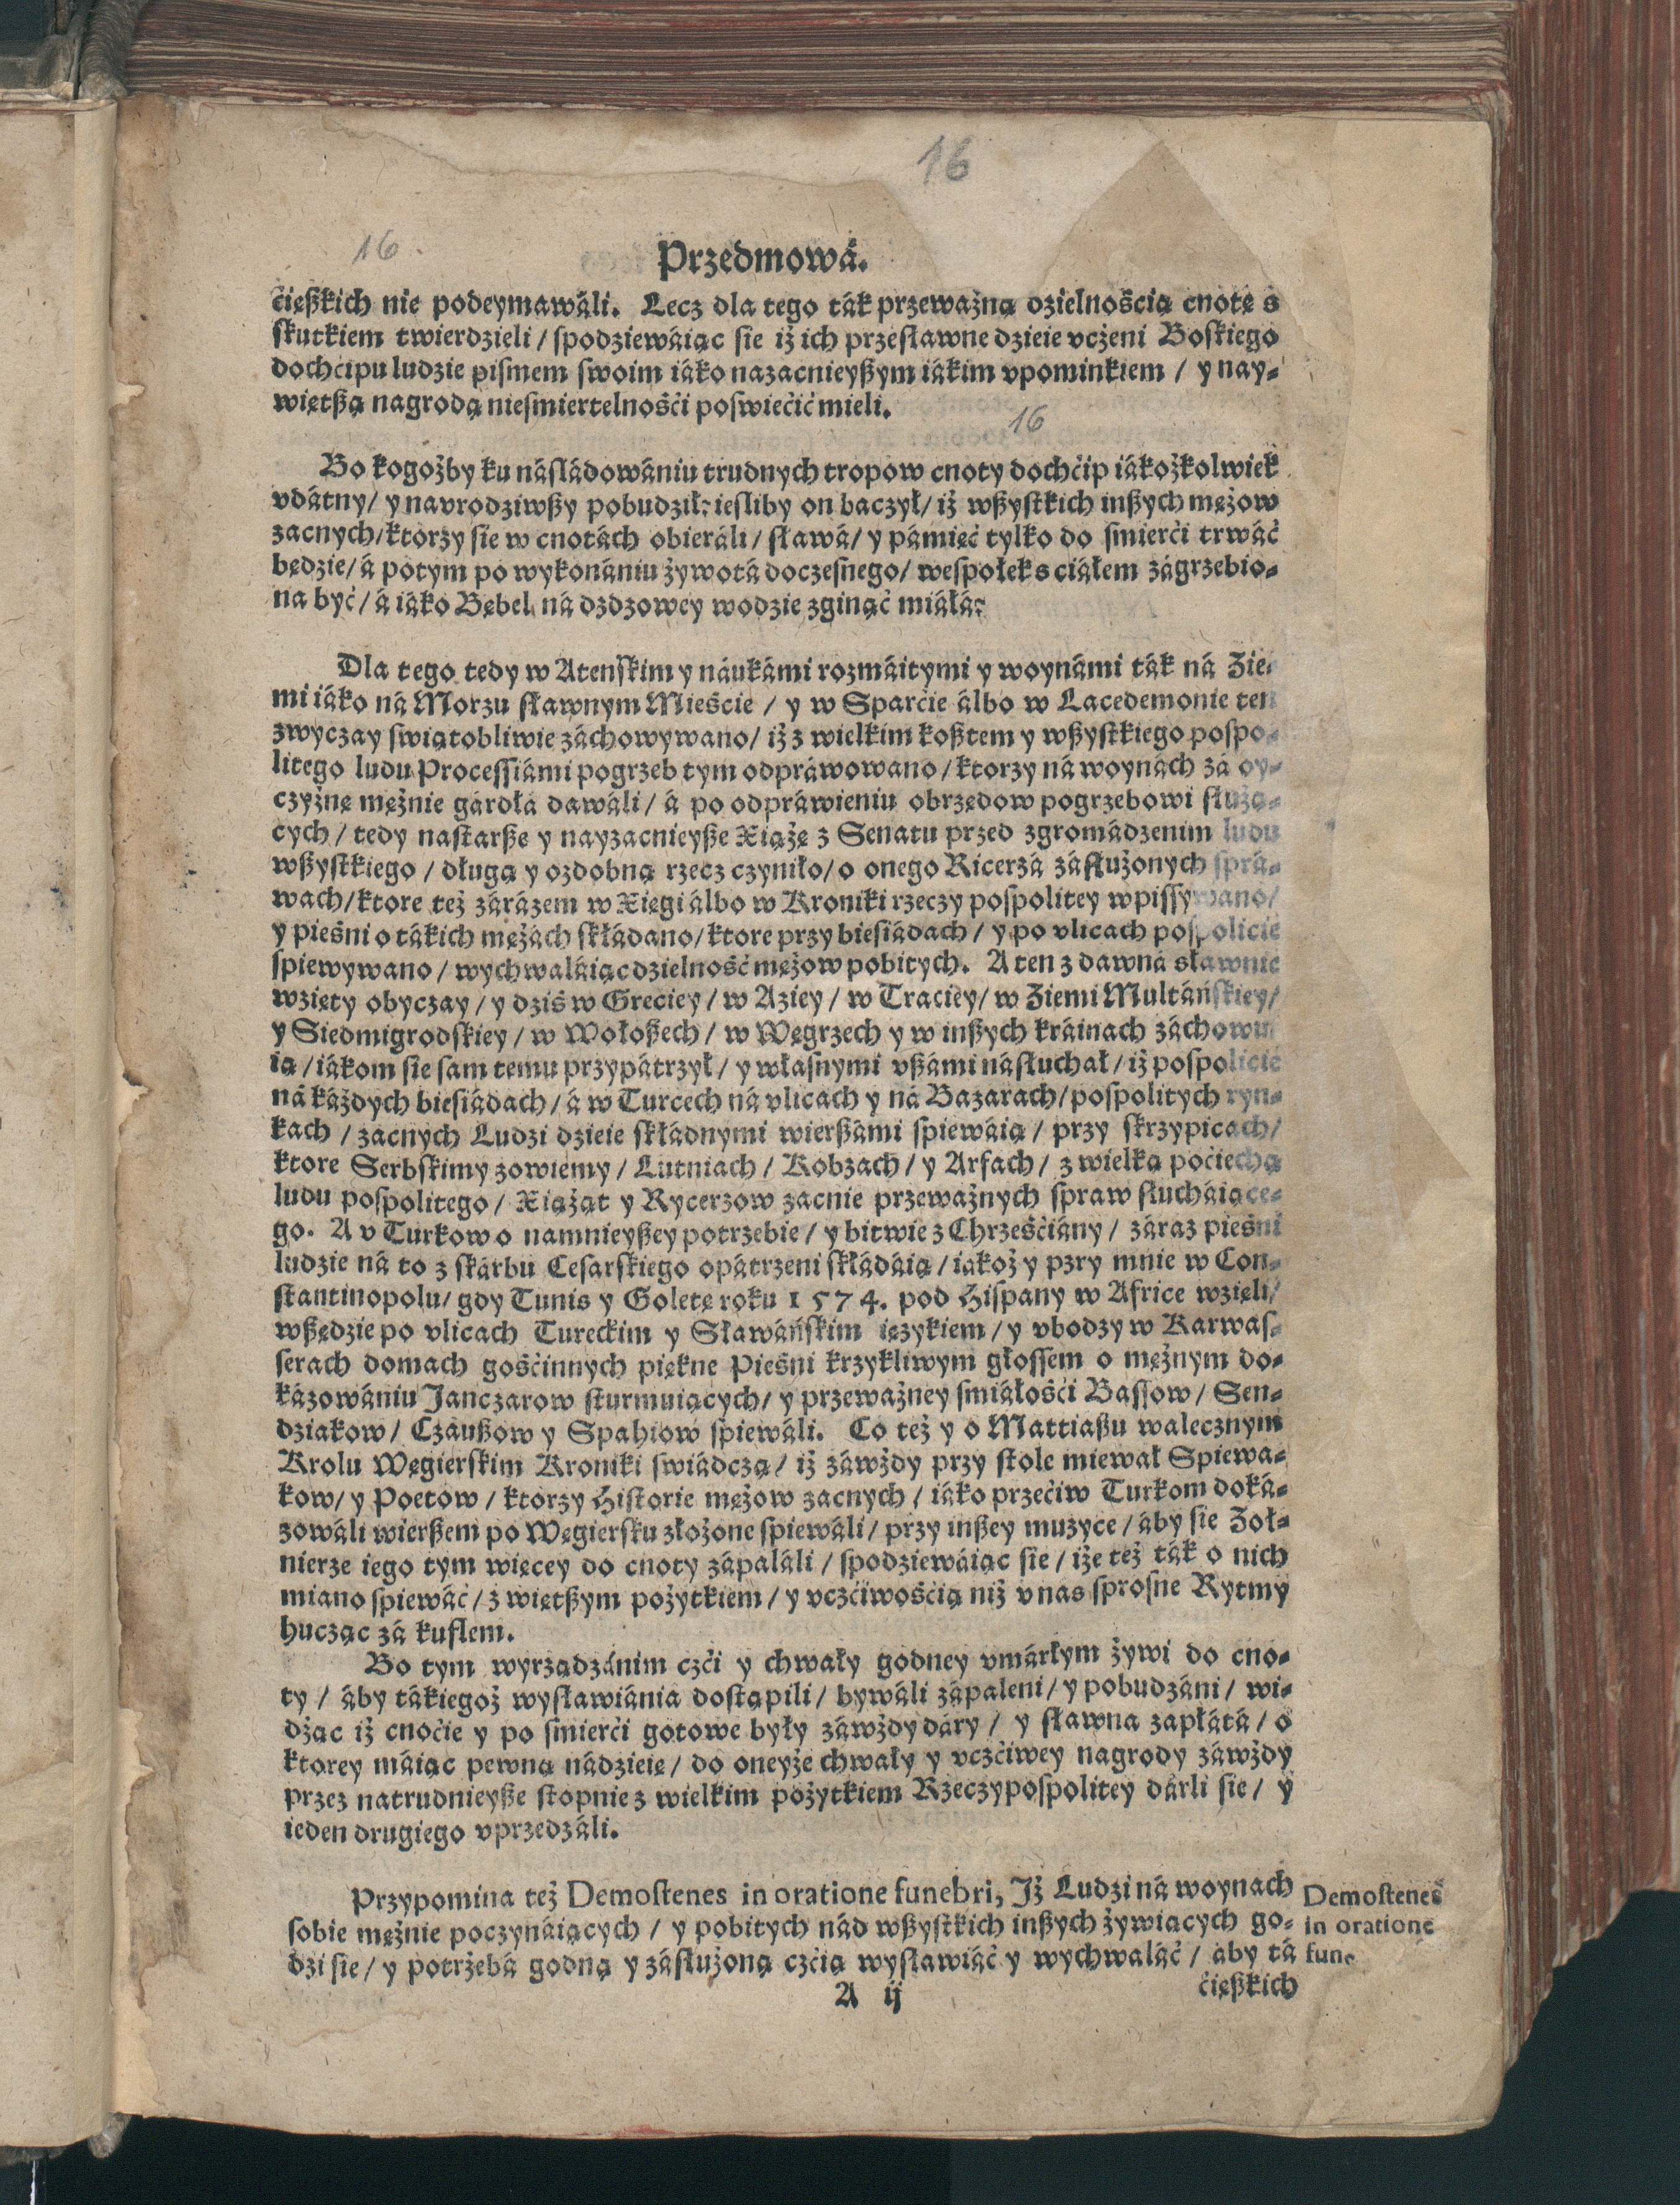 16
16.
Przedmowá.
ćięßkich nie podeymawáli. Lecz dla tego ták przeważną dzielnośćią cnotę s
skutkiem twierdzieli / spodziewáiąc sie iż ich przesławne dzieie vcżeni Boskiego
dochćipu ludzie pismem swoim iáko nazacnieyßym iákim vpominkiem / y nay-
więtßą nagrodą nieśmiertelnośći poswiećić mieli.
16
Bo kogożby ku násládowániu trudnych tropow cnoty dochćip iákożkolwiek
vdátny / y navrodziwßy pobudził: iesliby on baczył / iż wßystkich inßych mężow
zacnych / ktorzy sie w cnotách obieráli / sławá / y pámięć tylko do smierći trwáć
będzie / á potym po wykonániu żywotá doczesnego / wespołek s ciáłem zágrzebio-
na być / á iáko Bębel ná dzdzowey wodzie zginąć miáłá?
Dla tego tedy w Atenskim y náukámi rozmáitymi y woynámi ták ná Zie-
mi iáko ná Morzu sławnym Mieście / y w Sparćie álbo w Lacedemonie ten
zwyczay swiątobliwie záchowywano / iż z wielkim koßtem y wßystkiego pospo-
litego ludu Processiámi pogrzeb tym odpráwowano / ktorzy ná woynách zá oy-
czyznę mężnie gárdłá dawáli / á po odpráwieniu obrzędow pogrzebowi służą-
cych / tedy nastarße y nayzacnieyße Xiążę z Senatu przed zgromádzenim ludu
wßystkiego / długą y ozdobną rzecz czyniło / o onego Ricerzá zásłużonych sprá-
wach / ktore też zárázem w Xięgi álbo w Kroniki rzeczy pospolitey wpissywano /
y pieśni o tákich mężách skłádano / ktore przy biesiádach / y po vlicach pospolićie
spiewywano / wychwaláiąc dzielność mężow pobitych. A ten z dawná sławnie
wzięty obyczay / y dziś w Greciey / w Aziey / w Traciey / w Ziemi Multáńskiey /
y Siedmigrodskiey / w Wołoßech / w Węgrzech y w inßych kráinach záchowu
ią / iákom sie sam temu przypátrzył / y własnymi vßámi násłuchał / iż pospolićie
ná káżdych biesiádach / á w Turcech ná vlicach y ná Bazarach / pospolitych ryn-
kach / zacnych Ludzi dzieie skłádnymi wierßámi spiewáią / przy skrzypicach /
ktore Serbskimy zowiemy / Lutniach / Kobzach / y Arfach / z wielką poćiechą
ludu pospolitego / Xiążąt y Rycerzow zacnie przeważnych spraw słucháiące-
go. A v Turkow o namnieyßey potrzebie / y bitwie z Chrześćiány / záraz pieśni
ludzie ná to z skárbu Cesarskiego opátrzeni skłádáią / iakoż y pzry mnie w Con-
stantinopolu / gdy Tunis y Goletę roku 1574. pod Hispany w Africe wzięli /
wßędzie po vlicach Tureckim y Sławáńskim ięzykiem / y vbodzy w Karwas-
serach domach gośćinnych piękne Pieśni krzykliwym głossem o mężnym do-
kázowániu Janczarow sturmuiących / y przeważney smiáłośći Bassow / Sen-
dziakow / Czáußow y Spahiow spiewáli. Co też y o Mattiaßu walecznym
Krolu Węgierskim Kroniki swiádczą / iż záwżdy przy stole miewał Spiewa-
kow / y Poetow / ktorzy Historie mężow zacnych / iáko przećiw Turkom doká-
zowáli wierßem po Węgiersku złożone spiewáli / przy inßey muzyce / áby sie Żoł-
nierze iego tym więcey do cnoty zápaláli / spodziewáiąc sie / iże też ták o nich
miano spiewáć / z więtßym pożytkiem / y vczćiwośćią niż v nas sprosne Rytmy
hucząc zá kuflem.
Bo tym wyrządzánim czći y chwały godney vmárłym żywi do cno-
ty / áby tákiegoż wysławiánia dostąpili / bywáli zápaleni / y pobudzáni / wi-
dżąc iż cnoćie y po smierći gotowe były záwżdy dáry / y sławna zapłátá / o
ktorey máiąc pewną nádzieię / do oneyże chwały y vczćiwey nagrody záwżdy
przez natrudnieyße stopnie z wielkim pożytkiem Rzeczypospolitey dárli sie / y
ieden drugiego vprzedzáli.
Przypomina też Demostenes in oratione funebri, Iż Ludzi ná woynach
sobie mężnie poczynáiących / y pobitych nád wßystkich inßych żywiących go-
dzi sie / y potrzebá godną y zásłużoną czćią wysławiáć y wychwaláć / áby tá
Demostenes
in oratione
fune.
A ij
ćięßkich